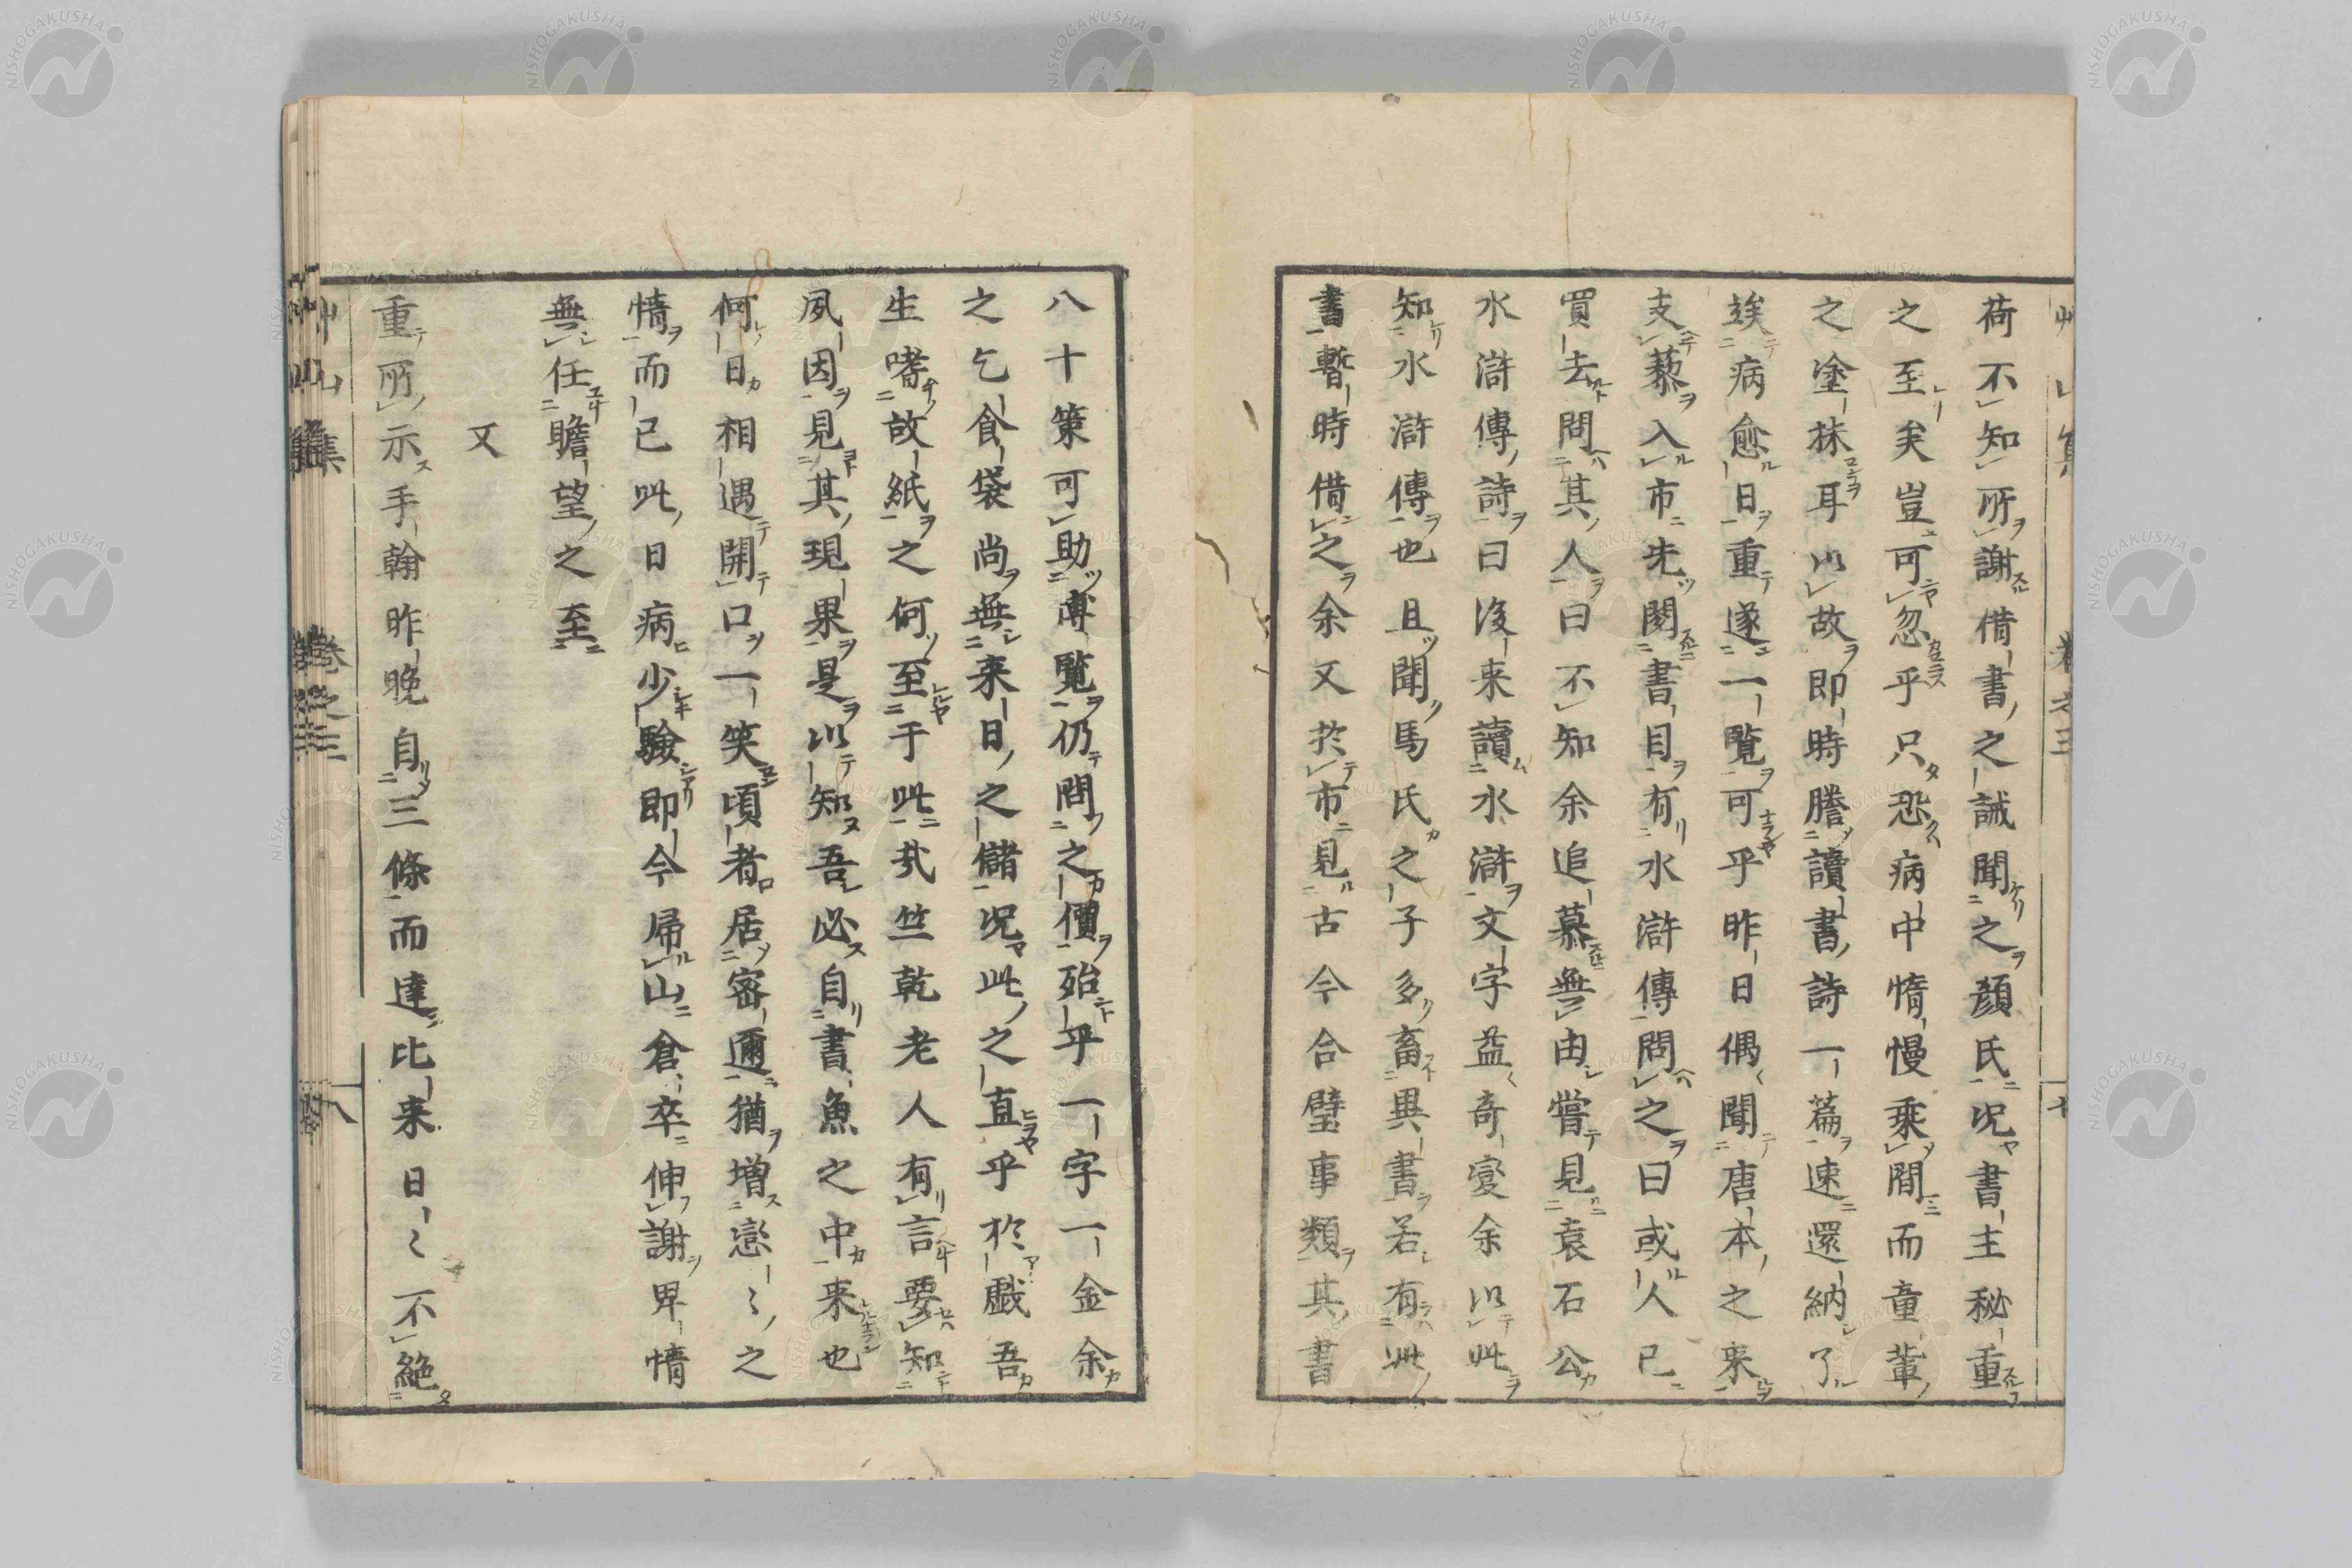 荷不知所謝借書之誡聞之顏氏況書主秘重
之至矣豈可忽乎只恐病中惰慢乘間而童輩
之塗抹耳以故即時謄讀書詩一篇速還納了
竢病愈日重遂一覽可乎昨日偶聞唐本之来
支藜入市先閱書目有水滸傳問之曰或人已
買去問其人曰不知余追慕無由嘗見袁石公
水滸傳詩曰後来讀水滸文字益奇変余以此
知水滸傳也且聞馬氏之子多畜異書若有此
書暫時借之余又於市見古今合璧事類其書
八十策可助博覽仍問之價殆乎一字一金余
之乞食袋尚無来日之儲況此之直乎於戲吾
生嗜故紙之何至于此㢤竺乾老人有言要知
夙因見其現果是以知吾必自書魚之中来也
何日相遇開口一笑頃者居密邇猶增戀〻之
情而已此日病少驗即今歸山倉卒伸謝卑情
無任瞻望之至
又
重所示手翰昨晚自三條而達比来日〻不絕
艸山集
卷之三
十八
NISHOGAKUSHA